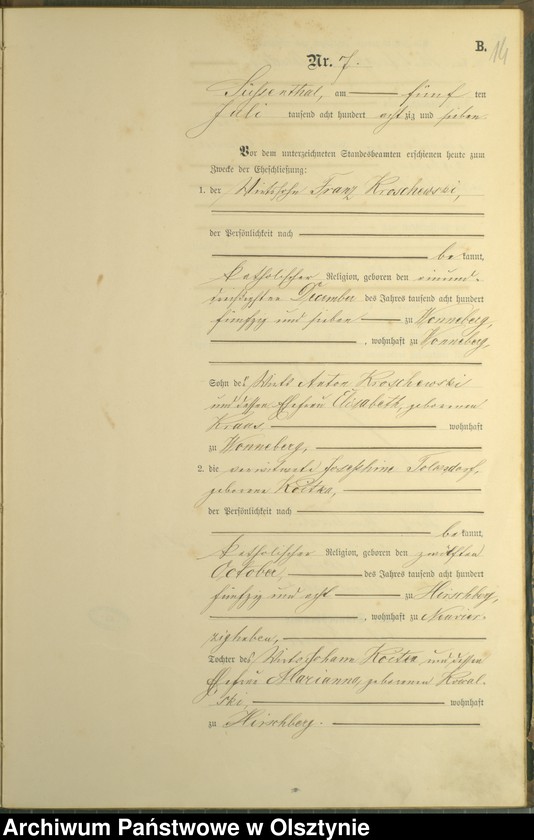 B.
14
Nr. 7.
Süssenthal, am fünf ten
Juli tausend acht hundert achtzig und sieben.
Vor dem unterzeichneten Standesbeamten erschienen heute zum
Zwecke der Eheschließung:
1. der Wirthssohn Franz Kroschewski,
der Persönlichkeit nach
be kannt,
katholischer Religion, geboren den einund-
dreißigsten December des Jahres tausend acht hundert
fünfzig und sieben zu Wonneberg,
, wohnhaft zu Wonneberg,
Sohn des Wirts Anton Kroschewski
und dessen Ehefrau Elisabeth, geborenen
wohnhaft
zu Wonneberg,
2. die verwitwete Josephine Tolksdorf,
geborene
der Persönlichkeit nach
be kannt,
katholischer Religion, geboren den zwölften
October, des Jahres tausend acht hundert
fünfzig und acht zu Hirschberg,
, wohnhaft zu Neuvier-
zighuben,
Tochter des Wirts Johann und dessen
Ehefrau Marianna, geborenen Kowal-
ski, wohnhaft
zu Hirschberg.
Archiwum Państwowe w Olsztynie